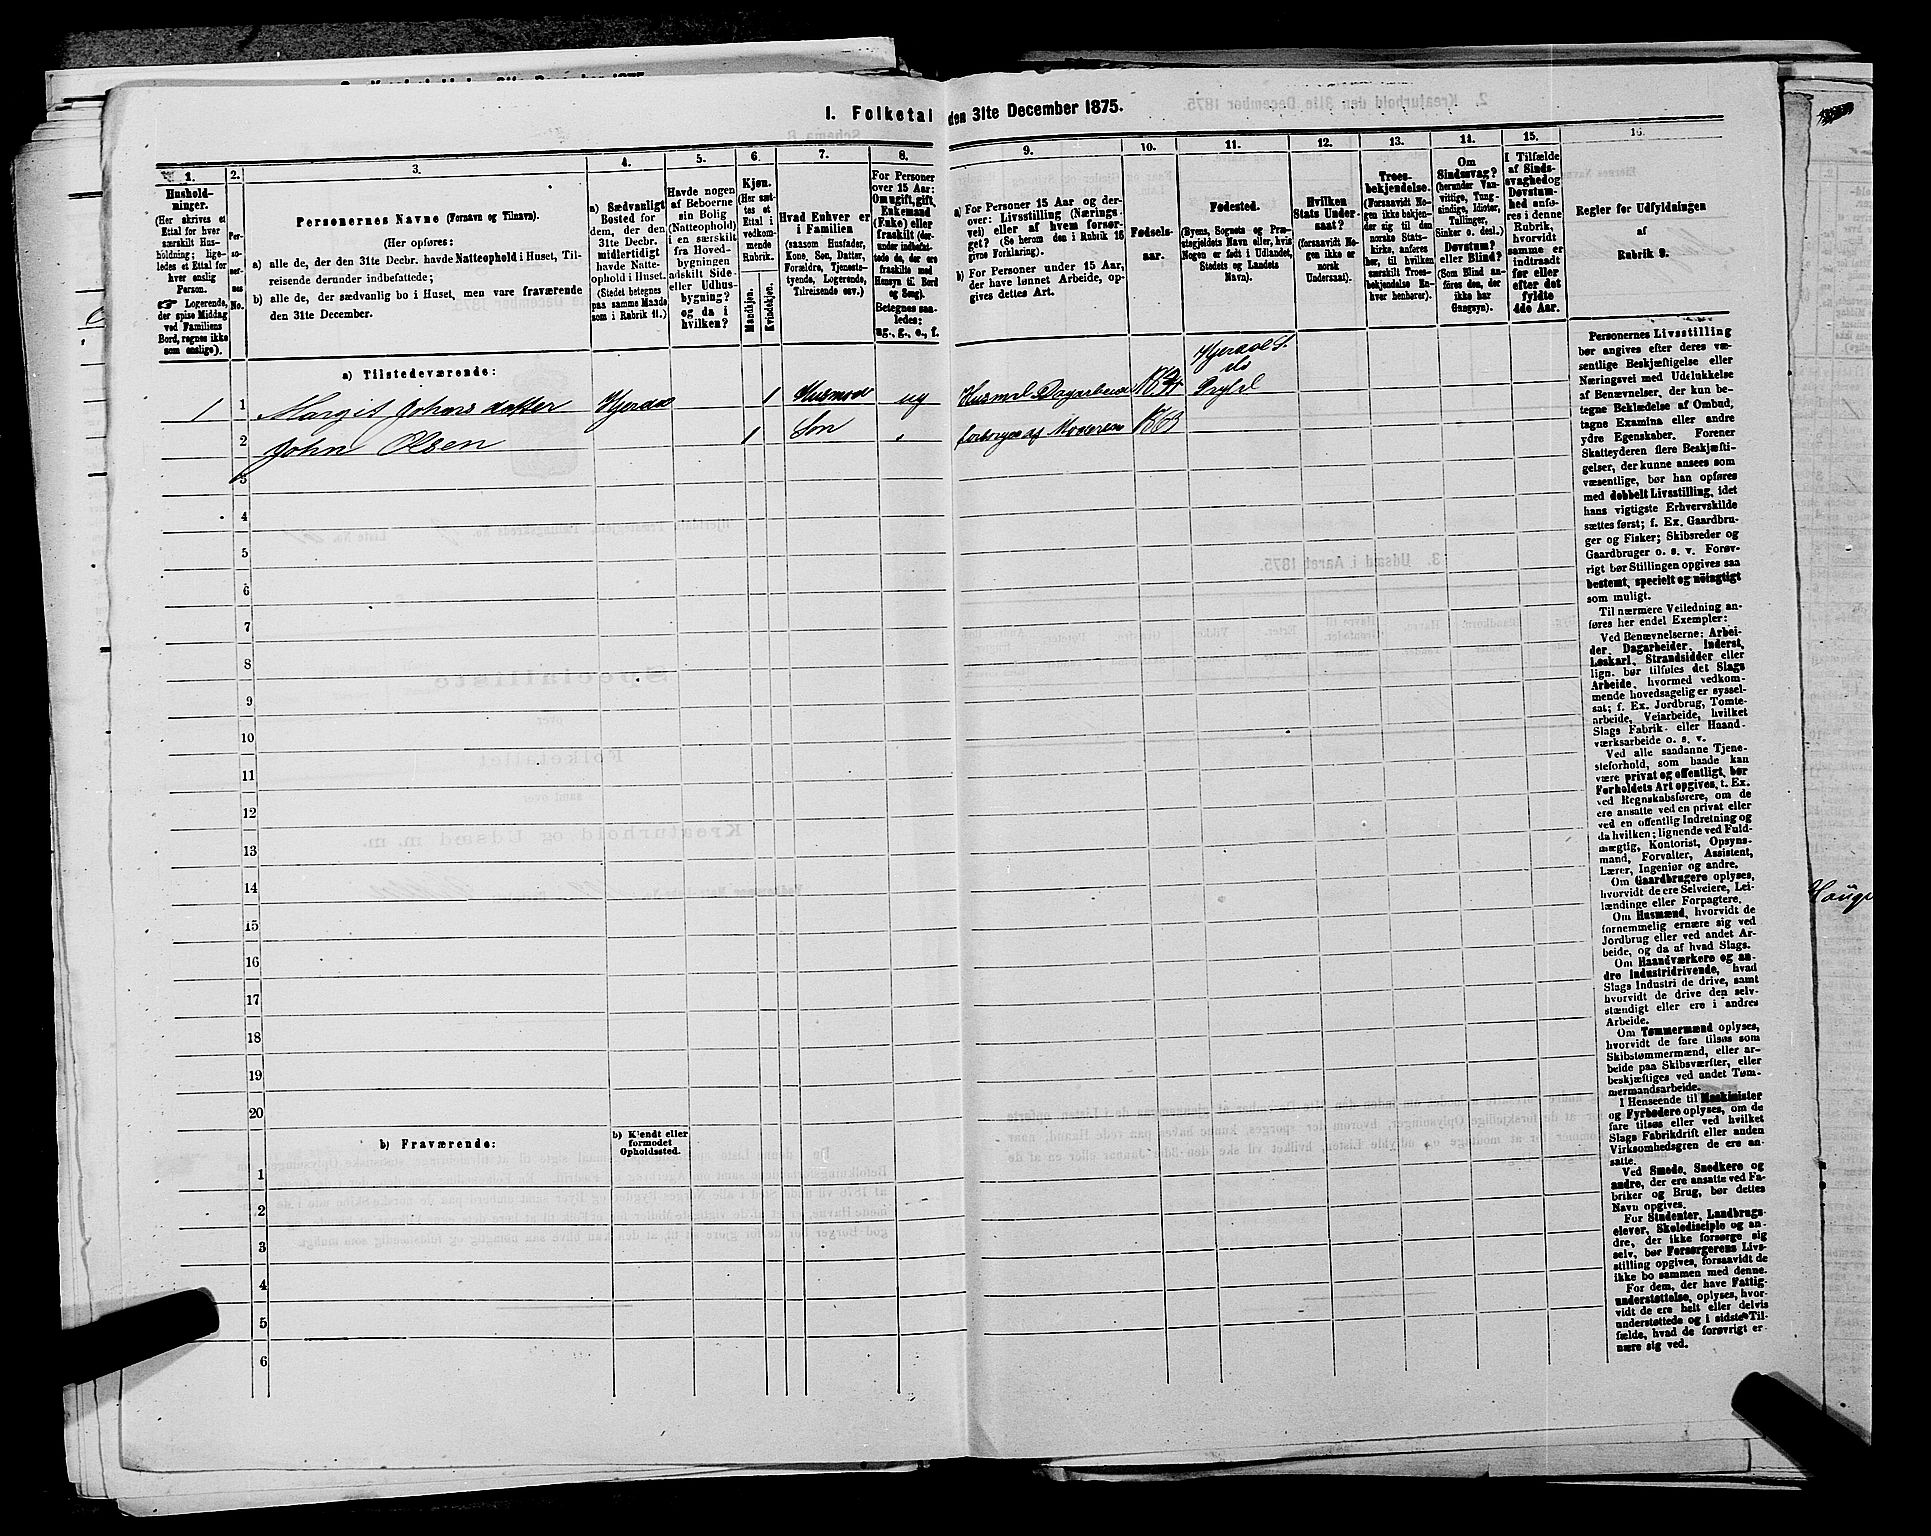 I. Folketal den 31te December 1875.
1.
Hushold-
ninger.
(Her skrives et
Ettal for hver
særskilt Hus-
holdning; lige-
ledes et Ettal for
hver enslig
Person.
☞ Logerende,
der spise Middag
ved Familiens
Bord, regnes ikke
som enslige).
2.
Per-
so-
ner-
nes
No.
3.
Personernes Navne (Fornavn og Tilnavn).
(Her opføres:
a) alle de, der den 31te Decbr. havde Natteophold i Huset, Til-
reisende derunder indbefattede;
b) alle de, der sædvanlig bo i Huset, men vare fraværende
den 31te December.
4.
a) Sædvanligt
Bosted for
dem, der den
31te Decbr.
midlertidigt
havde Natte-
ophold i Huset.
(Stedet betegnes
paa samme Maade
som i Rubrik 11.)
5.
Havde nogen
af Beboerne
sin Bolig
(Natteophold)
i en særskilt
fra Hoved-
bygningen
adskilt Side-
eller Udhus-
bygning?
og da i
hvilken?
6.
Kjøn.
(Her sæt-
tes et
Ettal i
vedkom-
mende
Rubrik.
Mandkjøn.
Kvindekjøn.
7.
Hvad Enhver er
i Familien
(saasom Husfader,
Kone, Søn, Datter,
Forældre, Tjeneste-
tyende, Logerende,
Tilreisende osv.)
8.
For Personer
over 15 Aar:
Om ugift, gift,
Enkemand
(Enke) eller
fraskilt (der-
under indbefat-
tede de, der ere
fraskilte med
Hensyn til Bord
og Seng).
Betegnes saa-
ledes:
ug., g., e., f.
9.
a) For Personer 15 Aar og der-
over: Livsstilling (Nærings-
vei) eller af hvem forsør-
get? (Se herom den i Rubrik 16
givne Forklaring).
b) For Personer under 15 Aar,
der have lønnet Arbeide, op-
gives dettes Art.
10.
Fødsels-
aar.
11.
Fødested.
(Byens, Sognets og Præ-
stegjeldets Navn eller, hvis
Nogen er født i Udlandet,
Stedets og Landets
Navn).
12.
Hvilken
Stats Under-
saat?
(forsaavidt No-
gen ikke er
norsk
Undersaat).
13.
Troes-
bekjendelse.
(Forsaavidt No-
gen ikke bekjen-
der sig til den
norske Stats-
kirke, anføres
her, til hvilken
særskilt Troes-
bekjendelse En-
hver henhører).
14.
Om
Sindssvag?
(herunder Van-
vittige, Tung-
sindige, Idioter,
Tullinger,
Sinker o. desl.)
Døvstum?
eller Blind?
(Som Blind an-
føres den, der
ikke har
Gangsyn).
15.
I Tilfælde
af Sinds-
svaghed og
Døvstum-
hed anfø-
res i denne
Rubrik,
hvorvidt
samme er
indtraadt
før eller
efter det
fyldte
4de Aar.
16.
Regler for Udfyldningen
af
Rubrik 9.
a) Tilstedeværende:
1 1 Margit Johnsdatter 1 ug
2 John Olsen 1 Søn 1863
3
4
5
6
7
8
9
10
11
12
13
14
15
16
17
18
19
20
b) Fraværende:
b) Kjendt eller
formodet
Opholdssted.
1
2
3
4
5
6
Personernes Livsstilling
bør angives efter deres væ-
sentlige Beskjæftigelse eller
Næringsvei med Udelukkelse
af Benævnelser, der kun be-
tegne Beklædelse af Ombud,
tagne Examina eller andre
ydre Egenskaber. Forener
Skatteyderen flere Beskjæfti-
gelser, der kunne ansees som
væsentlige, bør han opføres
med dobbelt Livsstilling, idet
hans vigtigste Erhvervskilde
sættes først; f. Ex. Gaardbru-
ger og Fisker; Skibsreder og
Gaardbruger o. s. v. Forøv-
rigt bør Stillingen opgives saa
bestemt, specielt og nöiagtigt
som muligt.
Til nærmere Veiledning an-
føres her endel Exempler:
Ved Benævnelserne: Arbei-
der, Dagarbeider, Inderst,
Løskarl, Strandsidder eller
lign. bør tilføies det Slags
Arbeide, hvormed vedkom-
mende hovedsagelig er syssel-
sat; f. Ex. Jordbrug, Tomte-
arbeide, Veiarbeide, hvilket
Slags Fabrik- eller Haand-
værksarbeide o. s. v.
Ved alle saadanne Tjene-
steforhold, som baade kan
være privat og offentligt, bør
Forholdets Art opgives, t. Ex.
ved Regnskabsførere, om de
ere ansatte ved en privat eller
ved en offentlig Indretning og
da hvilken; lignende ved Fuld-
mægtig, Kontorist, Opsyns-
mand, Forvalter, Assistent,
Lærer, Ingeniør og andre.
Om Gaardbrugere oplyses,
hvorvidt de ere Selveiere, Lei-
lændinge eller Forpagtere.
Om Husmænd, hvorvidt de
fornemmelig ernære sig ved
Jordbrug eller ved andet Ar-
beide, og da af hvad Slags.
Om Haandværkere og an-
dre Industridrivende, hvad
Slags Industri de drive, samt
hvorvidt de drive den selv-
stændigt eller ere i andres
Arbeide.
Om Tømmermænd oplyses,
hvorvidt de fare tilsøs som
Skibstømmermænd, eller ar-
beide paa Skibsværfter, eller
beskjæftiges ved andet Tøm-
mermandsarbeide.
I Henseende til Maskinister
og Fyrbødere oplyses, om de
fare tilsøs eller ved hvilket
Slags Fabrikdrift eller anden
Virksomhedsgren de ere an-
satte.
Ved Smede, Snedkere og
andre, der ere ansatte ved Fa-
briker og Brug, bør dettes
Navn opgives.
For Studenter, Landbrugs-
elever, Skoledisciple og an-
dre, der ikke forsørge sig
selv, bør Forsørgerens Livs-
stilling opgives, forsaavidt de
ikke bo sammen med denne.
For dem, der have Fattig-
understøttelse, oplyses, hvor-
vidt de ere helt eller delvis
understøttede og i sidste Til-
fælde, hvad de forøvrigt er-
nære sig ved.